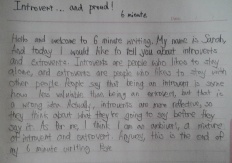 Introvert... and proud!
6 minute
Hello and welcome to 6 minute writing. My name is Sarah,
And today I would like to tell you about introverts
and Extroverts. Introverts are people who likes to stay
alone, and extroverts are people who likes to stay with
other people. People say that being an introvert is
less valuable than being an extrovert, but that is
a wrong idea. Actually, introverts are more reflective, so
they think about what they're going to say before they
say it. As for me, I think I am an ambivert, a mixture
of introvert and extrovert. Anyways, this is the end of
my 6 minute writing. Bye